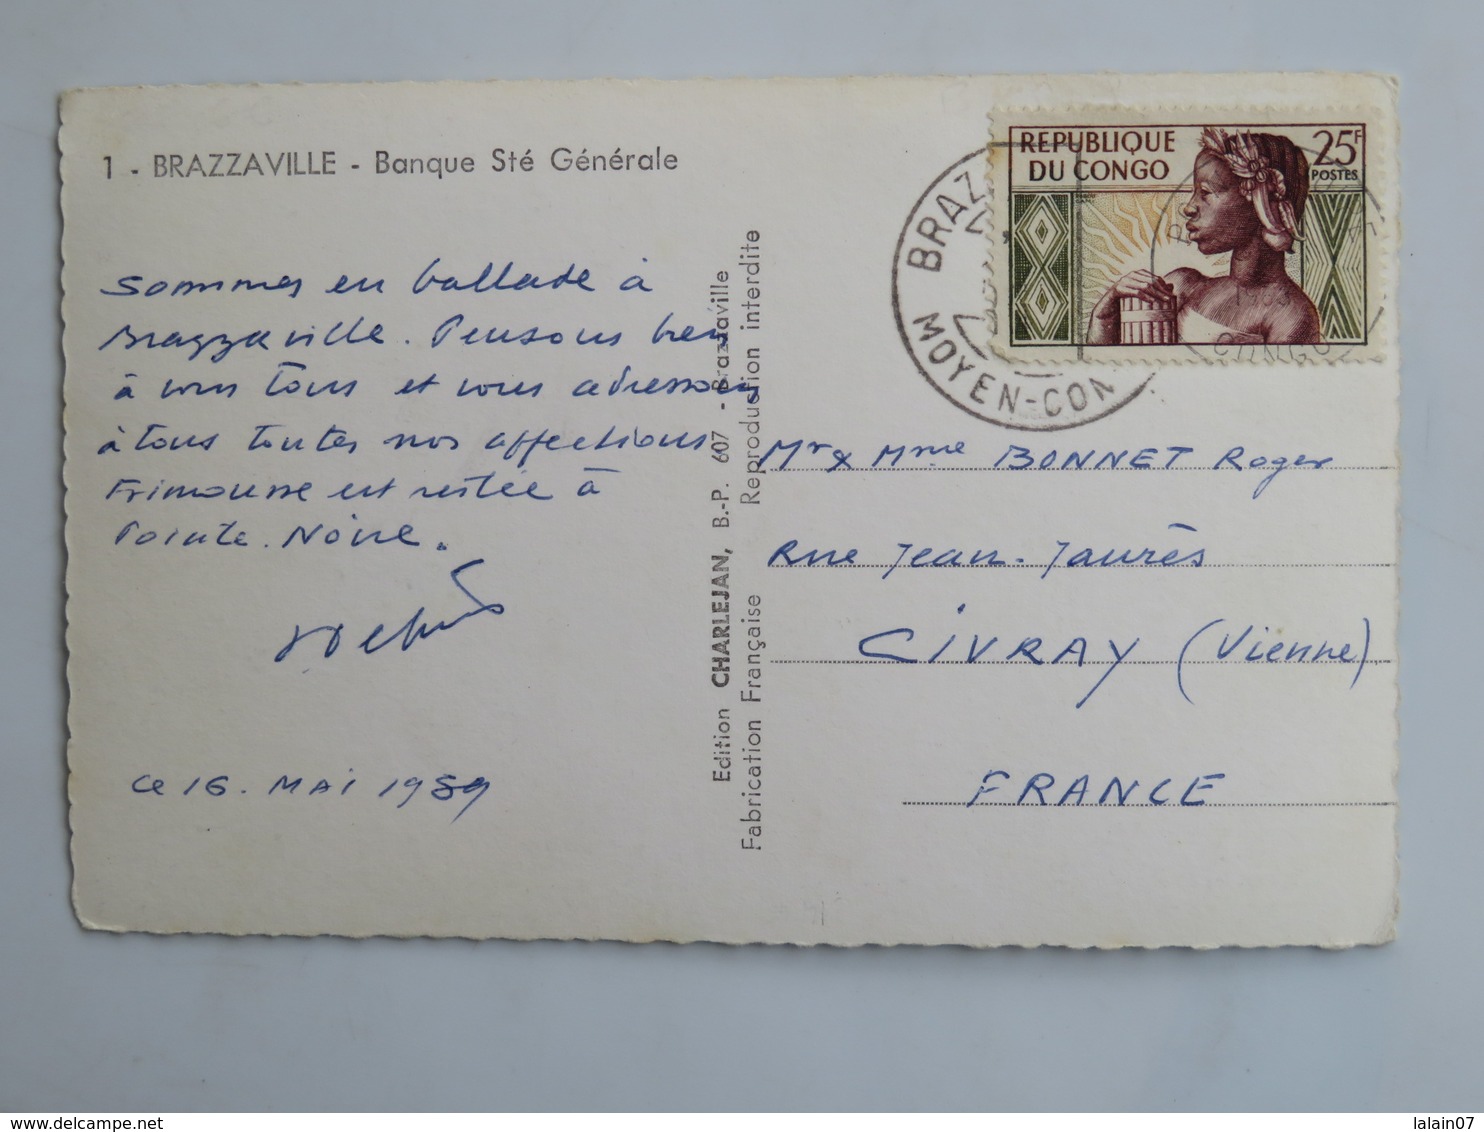 1 - BRAZZAVILLE - Banque Sté Générale
Sommes en ballade à
Brazzaville. Pensons bien
à vous tous et vous adressons
à tous toutes nos affections
Frimousse est restée à
Pointe. Noire.
ce 16. MAI 1959
Edition CHARLEJAN, B.-P. 607 - Brazzaville
Fabrication Française Reproduction interdite
REPUBLIQUE
DU CONGO
25F
POSTES
BRAZ
MOYEN-CON
Mr & Mme BONNET Roger
Rue Jean-Jaurès
CIVRAY (Vienne)
FRANCE
lalain07